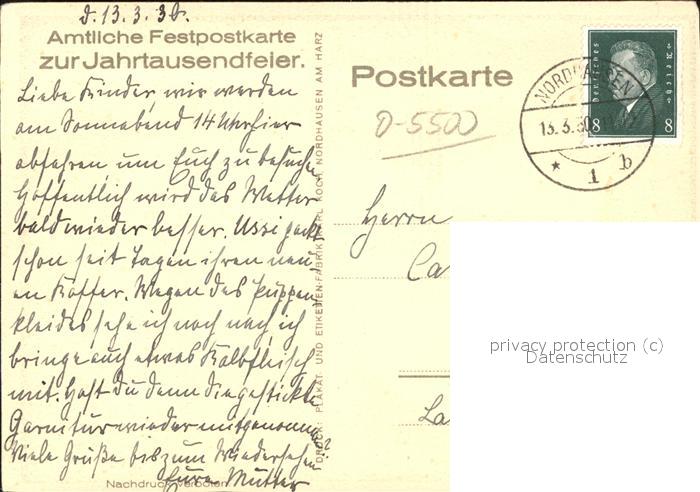 d. 13.3.30.
Amtliche Festpostkarte
zur Jahrtausendfeier.
Liebe Kinder, wir werden
am Sonnabend 14 Uhr hier
abfahren um Euch zu besuchen
Hoffentlich wird das Wetter
bald wieder besser. Ussi packt
schon seit Tagen ihren neu-
en Koffer. Wegen des Puppen
kleides sehe ich noch nach, ich
bringe auch etwas Kalbfleisch
mit. Hast du denn die gestickte
Garnitur wieder mitgenommen?
Viele Grüße bis zum Wiedersehen
Eure Mutter
Nachdruck verboten
DRUCK: PLAKAT- UND ETIKETTEN-FABRIK KARL KOCH, NORDHAUSEN AM HARZ
Postkarte
D-5500
Deutsches Reich
8 8
NORDHAUSEN
13.3.30
* 1 b
Herrn
Ca
La
privacy protection (c)
Datenschutz